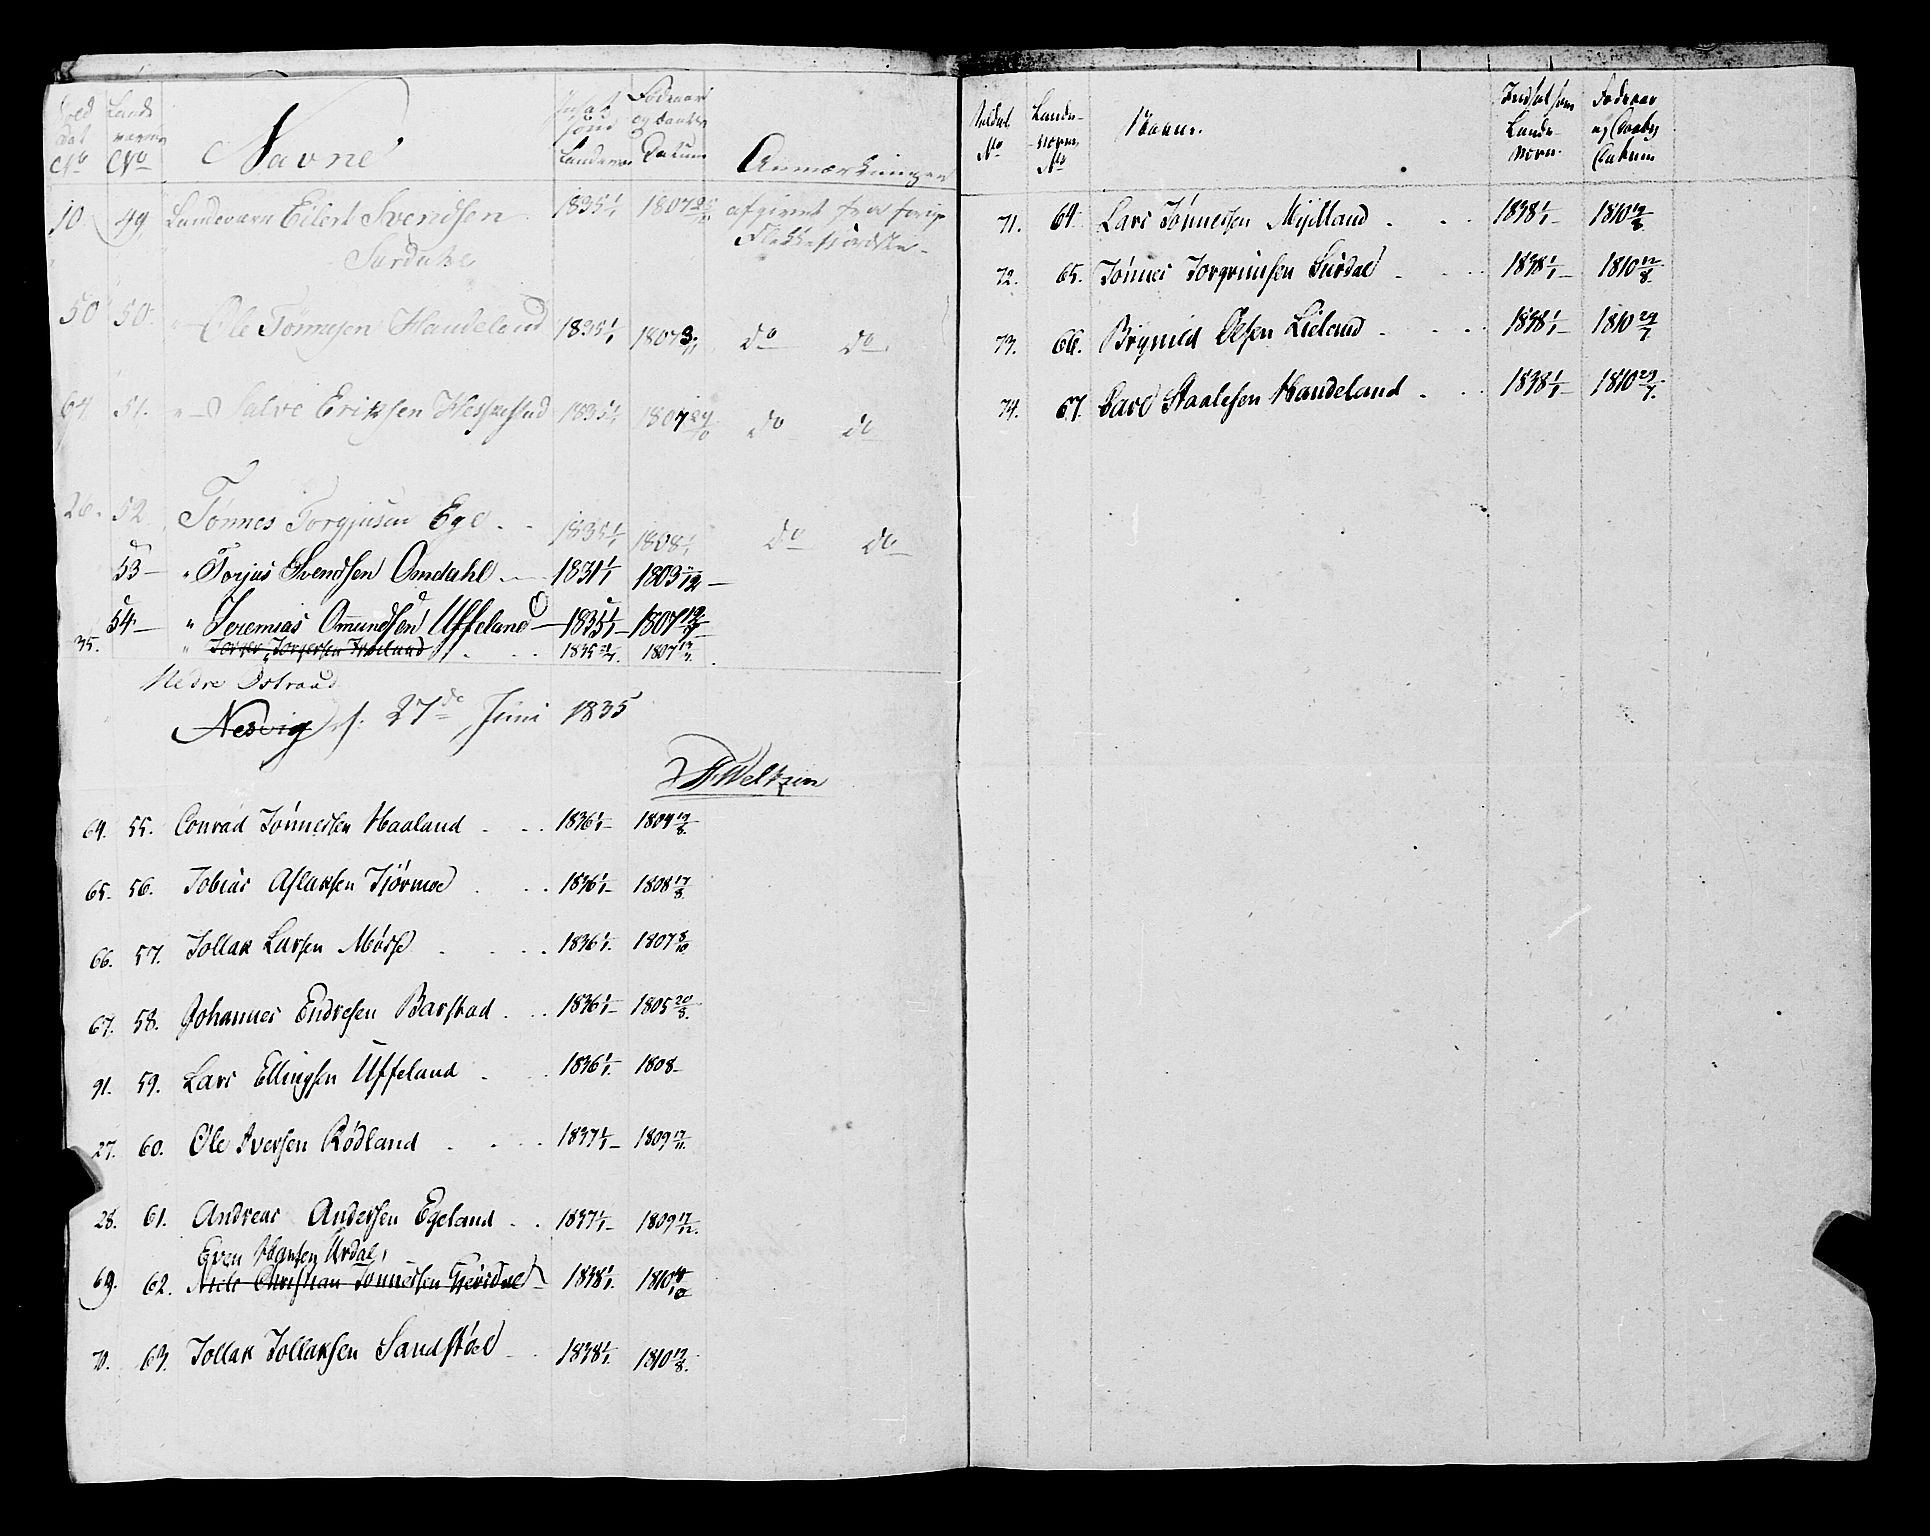 Navne
Anmærkninger
10. 49 Landeværn Eilert Svendsen 1835 1/1 1807 afgivet fra forige
Surdahl
50 50. Ole Tønnesen Handeland 1835 1/1 1807 do do
51. Salve Eriksen Heskestad 1835 1/1 1807 29/10 do do
26. 52 Tønnes Torgjusen Ege 1835 1/1 1808 1/1 do do
53 " Torjus Svendsen Omdahl 1831 1/1 1803
54 " Jeremias Omundsen Uffeland 1835 1/1 1807
35. " 1835 1807
Nedre Østraad
Nesvig d. 27de Juni 1835
64. 55. Conrad Tönnessen Haaland 1836 1/1 1804 19/8
65. 56. Tobias Aslaksen Tjörmoe 1836 1/1 1808 17/8
66. 57. Tollak Larsen 1836 1/1 1807 8/10
67. 58. Johannes Endresen Barstad 1836 1/1 1805 20/8
91. 59. Lars Ellingsen Uffeland 1836 1/1 1808
27. 60. Ole Iversen Rödland 1837 1/1 1809 17/11
28. 61. Andreas Andersen Egeland 1837 1/1 1809 17/12
Even Hansen Urdal
69. 62. Niels Christian Tönnessen 1838 1/1 1810
70. 63. Tollak Tollaksen Sandstöel 1838 1/1 1810 19/8
Soldat No Landeværns No Navne. Indsat som Landeværn Fødeaar og Daabs Datum
71. 64. Lars Tönnessen Mydland 1838 1/1 1810 19/8
72. 65. Tönnes Torgrimsen Surdal 1838 1/1 1810 12/8
73. 66. Brynild Olsen Lieland 1838 1/1 1810 29/7
74. 67. Carl Staalesen Handeland 1838 1/1 1810 29/7